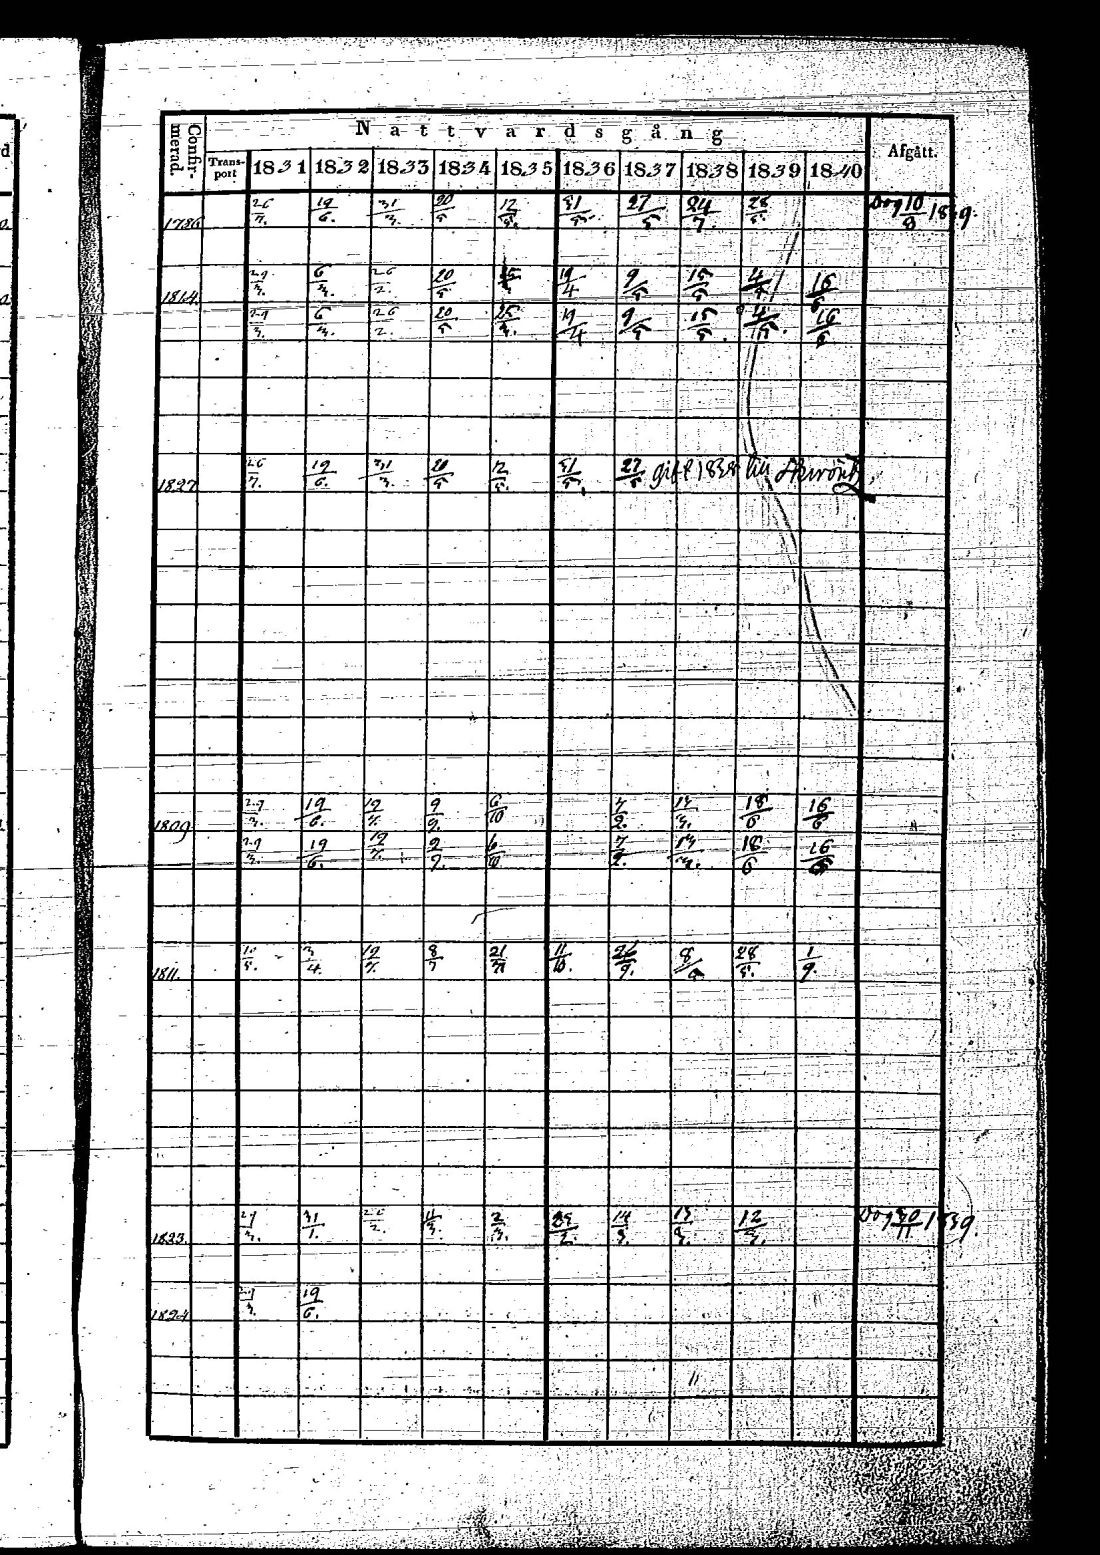 Nattvardsgång
Confirmerad. Transport 1831 1832 1833 1834 1835 1836 1837 1838 1839 1840 Afgått.
1786 26/7. 19/6. 31/3. 20/5 12/5. 31/5. 27/5 24/7. 28/5. Dog 10/8 1839.
1814 29/3. 6/3. 26/2. 20/5 19/4 9/5 15/5 4/5 16/6
29/3. 6/3. 26/2. 20/5 25/3. 19/4 9/5 15/5. 4/5. 16/6
1827 26/7. 19/6. 31/3. 20/5 12/5. 31/5. 27/5 gift 1838 till
1809 29/3. 19/6. 19/7. 9/9. 6/10 7/2. 18/6 16/6
29/3. 19/6. 19/7. 6/10 7/2. 18/6 16/6
1811. 10/5. 3/4. 19/7. 8/7 21/7 11/10. 26/9. 8/9 28/5. 1/9.
1823. 29/3. 31/1. 26/2. 11/3. 2/3. 14/3. 12/3. Dog 30/11 1839.
1824 29/3. 19/6.